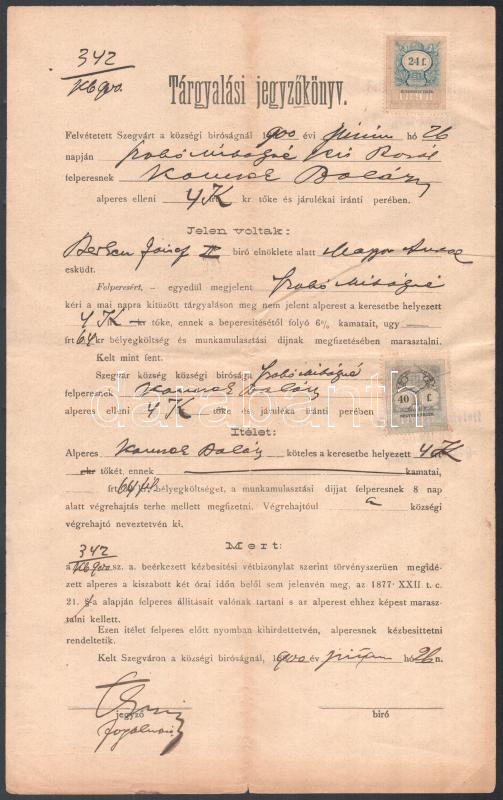 342
24 f.
Tárgyalási jegyzőkönyv.
Felvétetett Szegvárt a községi biróságnál 1900 évi junius hó 26
napján Szabó Mihályné Kis Rozál
felperesnek Balázs
alperes elleni 4 K kr tőke és járulékai iránti perében.
Jelen voltak:
József II biró elnöklete alatt
esküdt.
Felperesért, — egyedül megjelent Szabó Mihályné
kéri a mai napra kitüzött tárgyaláson meg nem jelent alperest a keresetbe helyezett
4 K kr tőke, ennek a beperesitésétől folyó 6% kamatait, ugy
frt 64 kr bélyegköltség és munkamulasztási dijnak megfizetésében marasztalni.
Kelt mint fent.
Szegvár község községi biróság Szabó Mihályné
felperesnek Balázs
alperes elleni 4 K tőke és járuléka iránti perében
40 f.
Itélet:
Alperes Balázs köteles a keresetbe helyezett 4 K
kr tőkét, ennek kamatai,
frt 64 bélyegköltséget, a munkamulasztási dijjat felperesnek 8 nap
alatt végrehajtás terhe mellett megfizetni. Végrehajtóul a községi
végrehajtó neveztetvén ki.
Mert:
342
a sz. a. beérkezett kézbesitési vétbizonylat szerint törvényszerüen megidé-
zett alperes a kiszabott két órai időn belől sem jelenvén meg, az 1877·XXII t. c.
21. §-a alapján felperes állitásait valónak tartani s az alperest ehhez képest marasz-
talni kellett.
Ezen itélet felperes előtt nyomban kihirdettetvén, alperesnek kézbesittetni
rendeltetik.
Kelt Szegváron a községi biróságnál, 1900 év hó 26 n.
jegyző
biró
darabanth